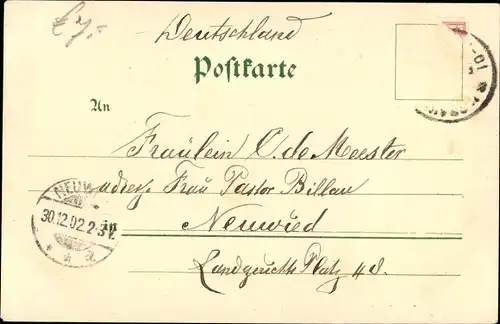 Deutschland
Postkarte
An
Fräulein C. de Meester
adress. Frau Pastor Billau
in Neuwied
Landgerichts Platz 4
NEUW
30.12.02.2-3